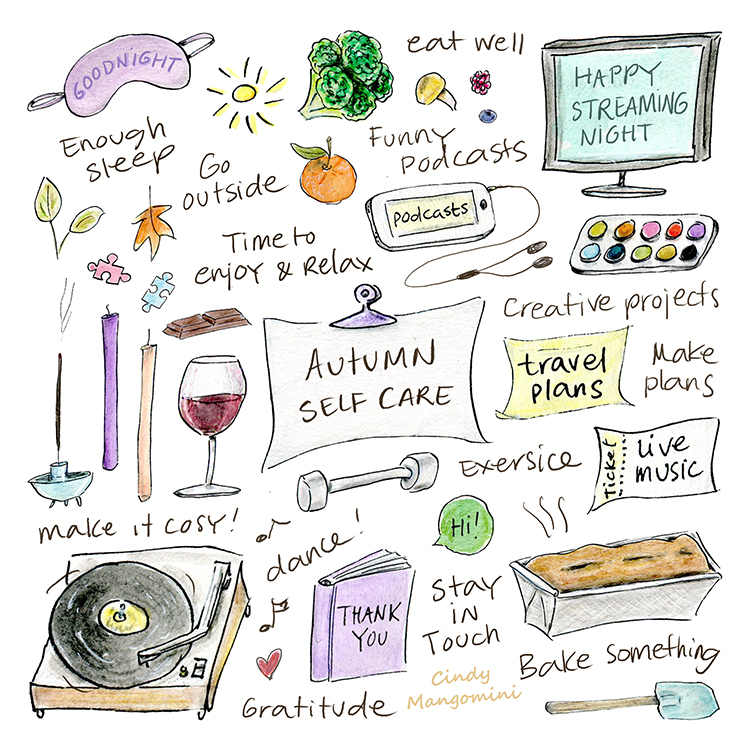 GOODNIGHT
eat well
HAPPY
STREAMING
NIGHT
Enough
sleep
Go
outside
Funny
Podcasts
Podcasts
Time to
enjoy & Relax
Creative projects
AUTUMN
SELF CARE
travel
plans
Make
plans
Exersice
Ticket
Live
music
make it cosy!
dance!
Hi!
THANK
YOU
Stay
in
Touch
Bake something
Gratitude
Cindy
Mangomini